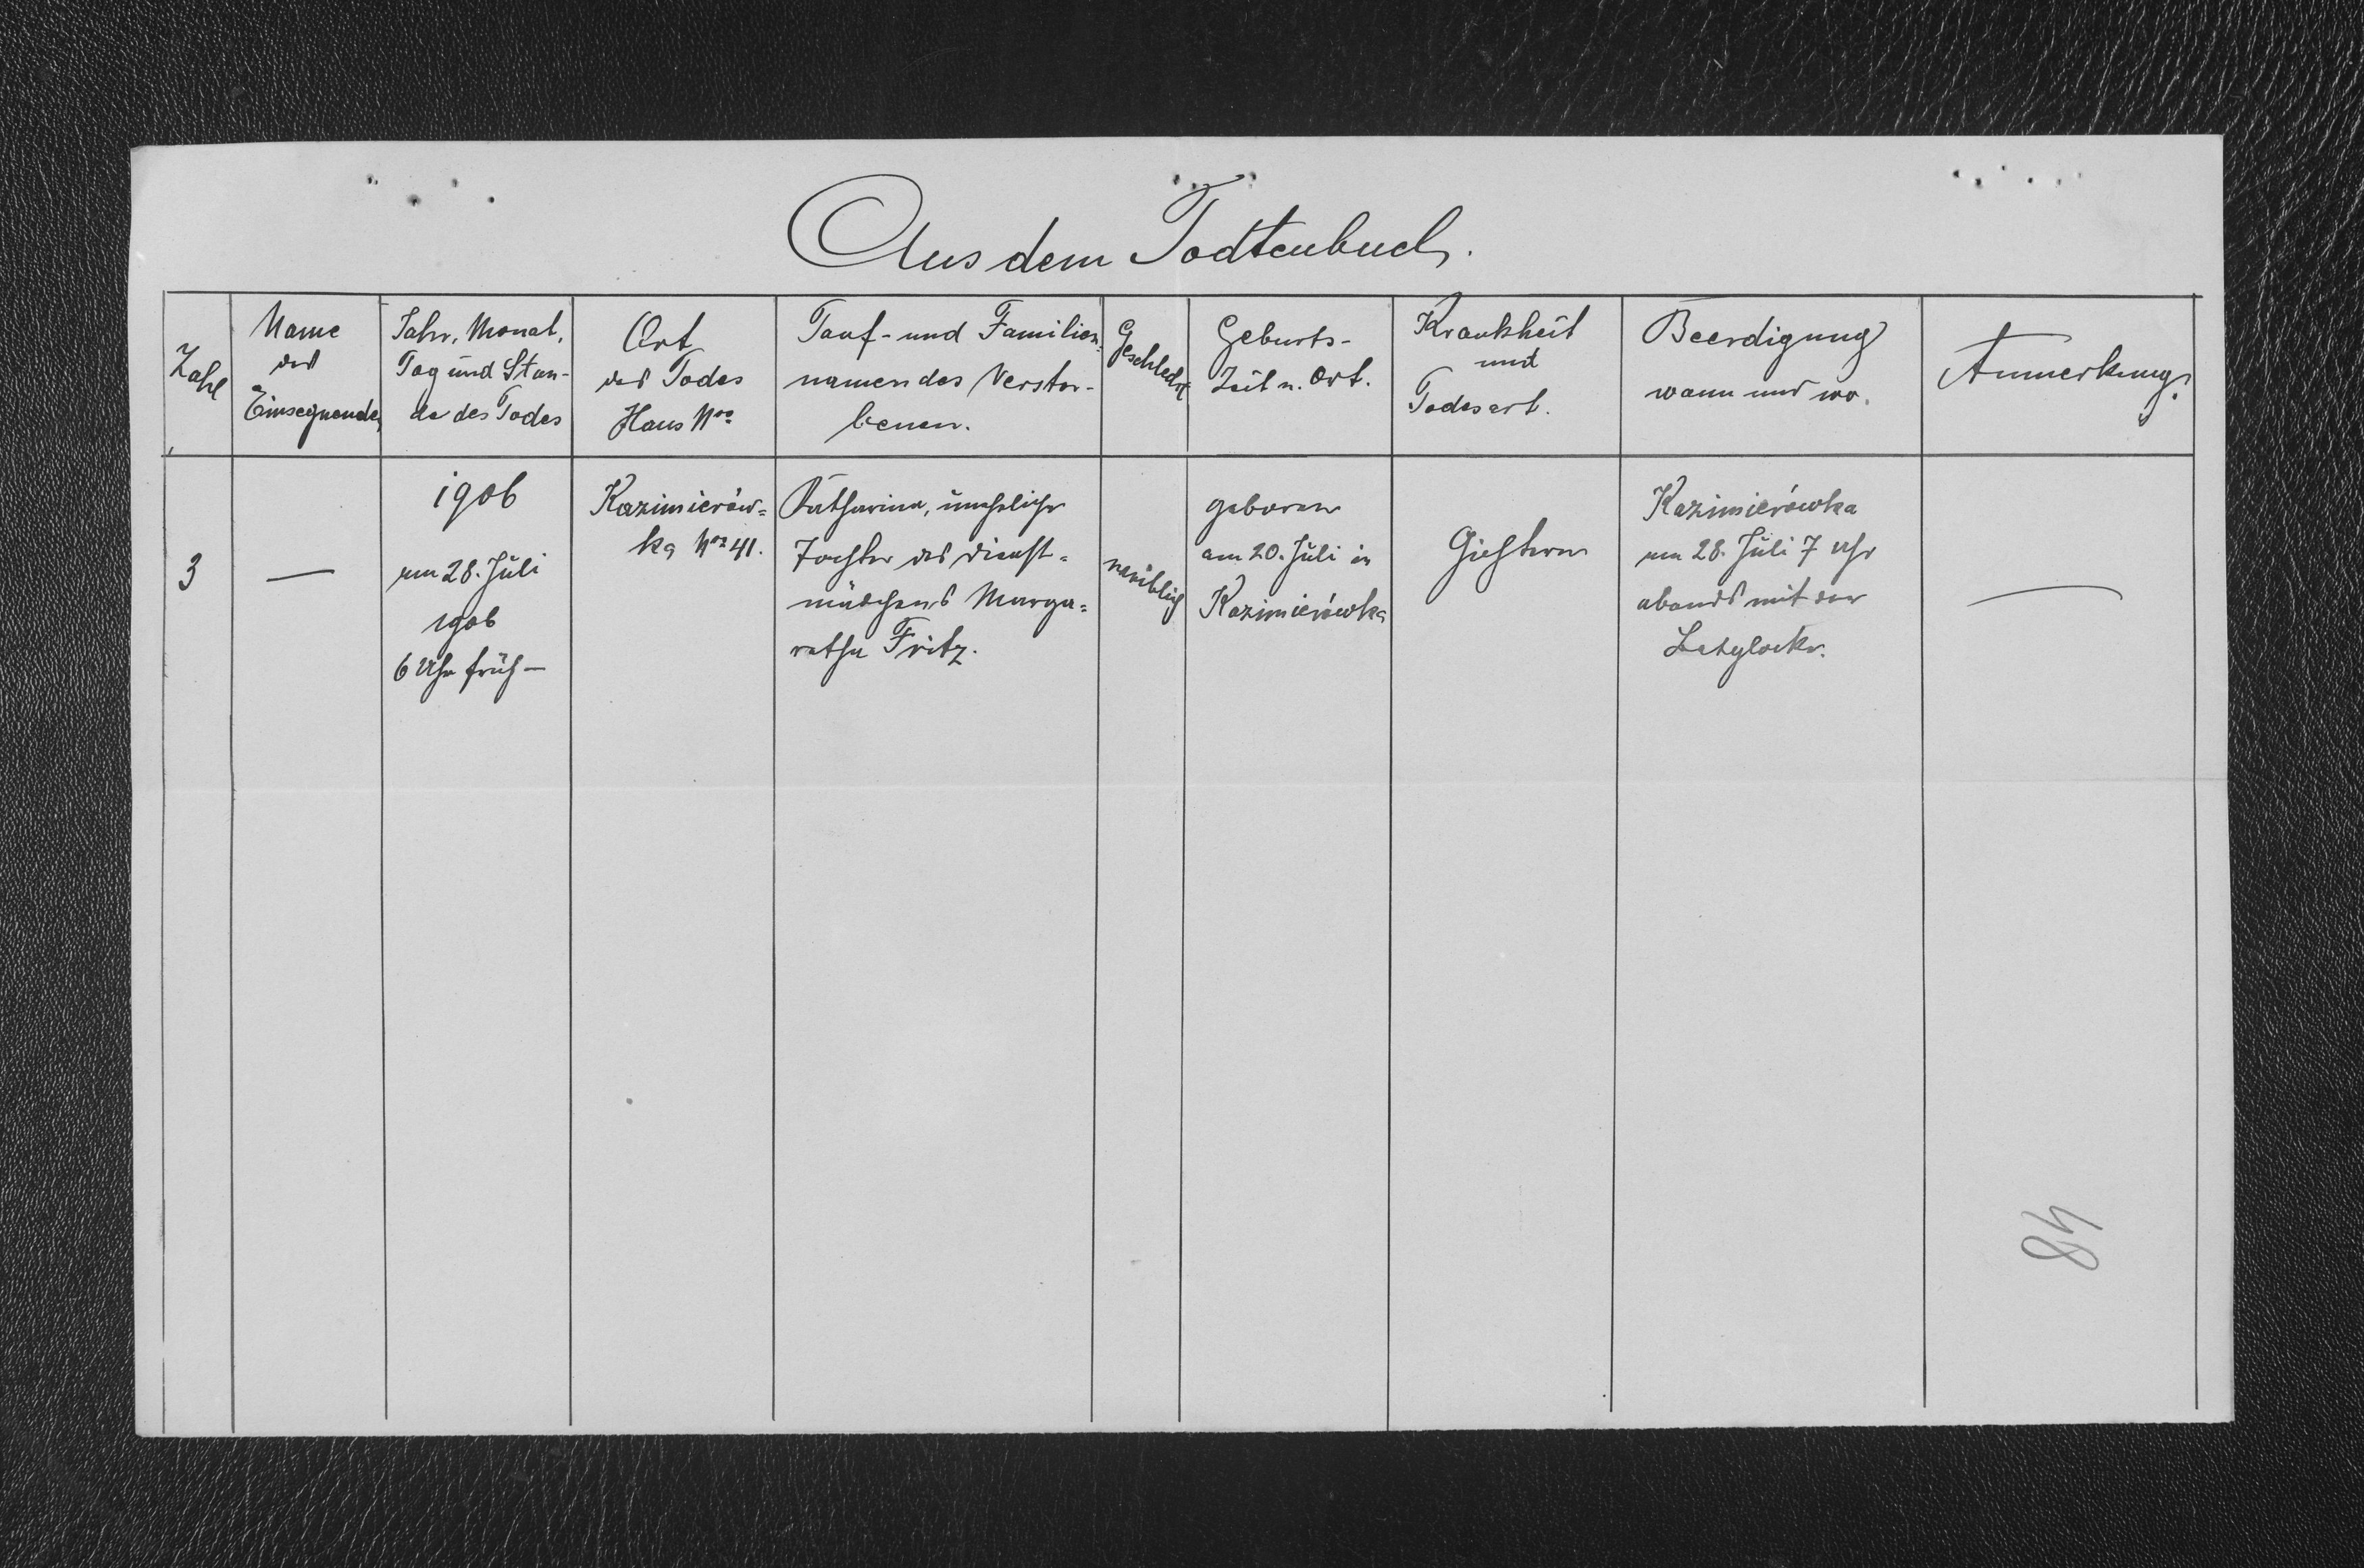 Aus dem Todtenbuch.
Zahl
Name
des
Einsegnenden
Jahr, Monat,
Tag und Stun-
de des Todes
Ort
des Todes
Haus Nro
Tauf- und Familien-
namen des Verstor-
benen.
Geschlecht
Geburts-
Zeit u. Ort.
Krankheit
und
Todesart.
Beerdigung
wann und wo.
Anmerkung.
3
—
1906
am 28. Juli
1906
6 Uhr früh —
Kazimierów=
ka Nro 41.
Katharina, uneheliche
Tochter des Dienst=
mädchens Marga=
retha Fritz.
weiblich
geboren
am 20. Juli in
Kazimierówka
Gichtern
Kazimierówka
am 28. Juli 7 Uhr
abends mit der
—
48